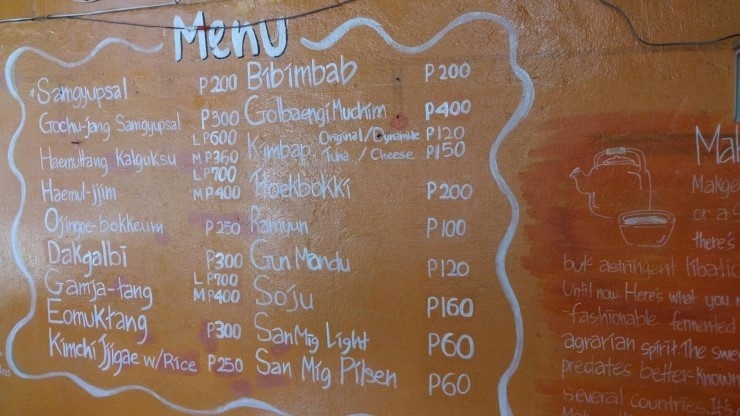 Menu
Samgyupsal P200
Gochu-jang Samgyupsal P300
Haemultang Kalguksu L P600 M P360
Haemul-jjim L P700 M P400
Ojingoe-bokkeum P250
Dakgalbi P300
Gamja-tang L P700 M P400
Eomuktang P300
Kimchi Jjigae w/Rice P250
Bibimbab P200
Golbaengi Muchim P400
Kimbap Original/Dynamite P120
Tuna / Cheese P150
Hoekbokki P200
Ramyun P100
Gun Mandu P120
Soju P160
San Mig Light P60
San Mig Pilsen P60
Mak
Makge
or a
there's
but astringent libatio
Until now. Here's what you
fashionable fermented
agrarian spirit. The swe
predates better-known
Several countries. It's